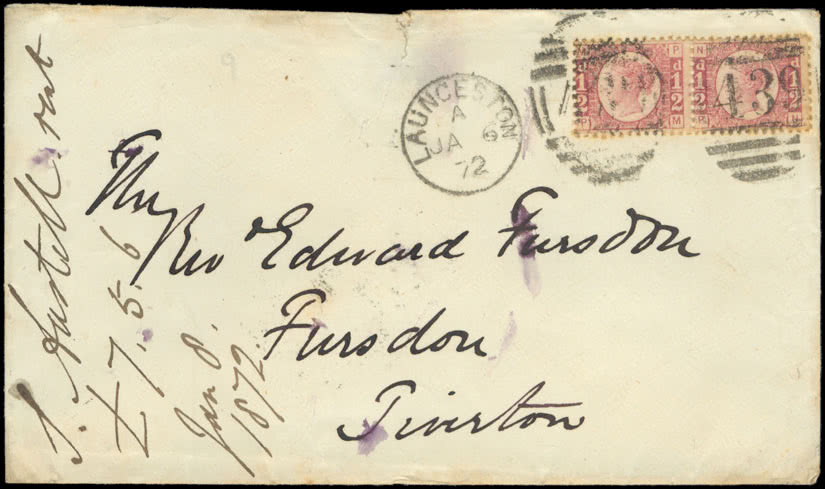 LAUNCESTON
A
JA 6
72
439
The
Revd Edward Fursdon
Fursdon
Tiverton
S. Austell. rent
£7. 5. 6
Jan 8.
1872.